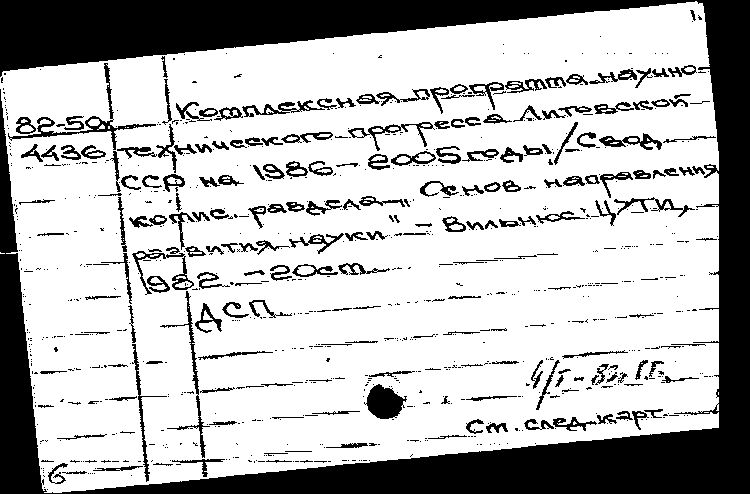 1.
82-50к
4436
Комплексная программа научно-
технического прогресса Литовской
ССР на 1986-2005 годы / Свод.
комис. раздела „Основ. направления
развития науки" - Вильнюс: ЦУТИ,
1982. - 20 ст.
ДСП.
4/I-83г.
См. след. карт
6